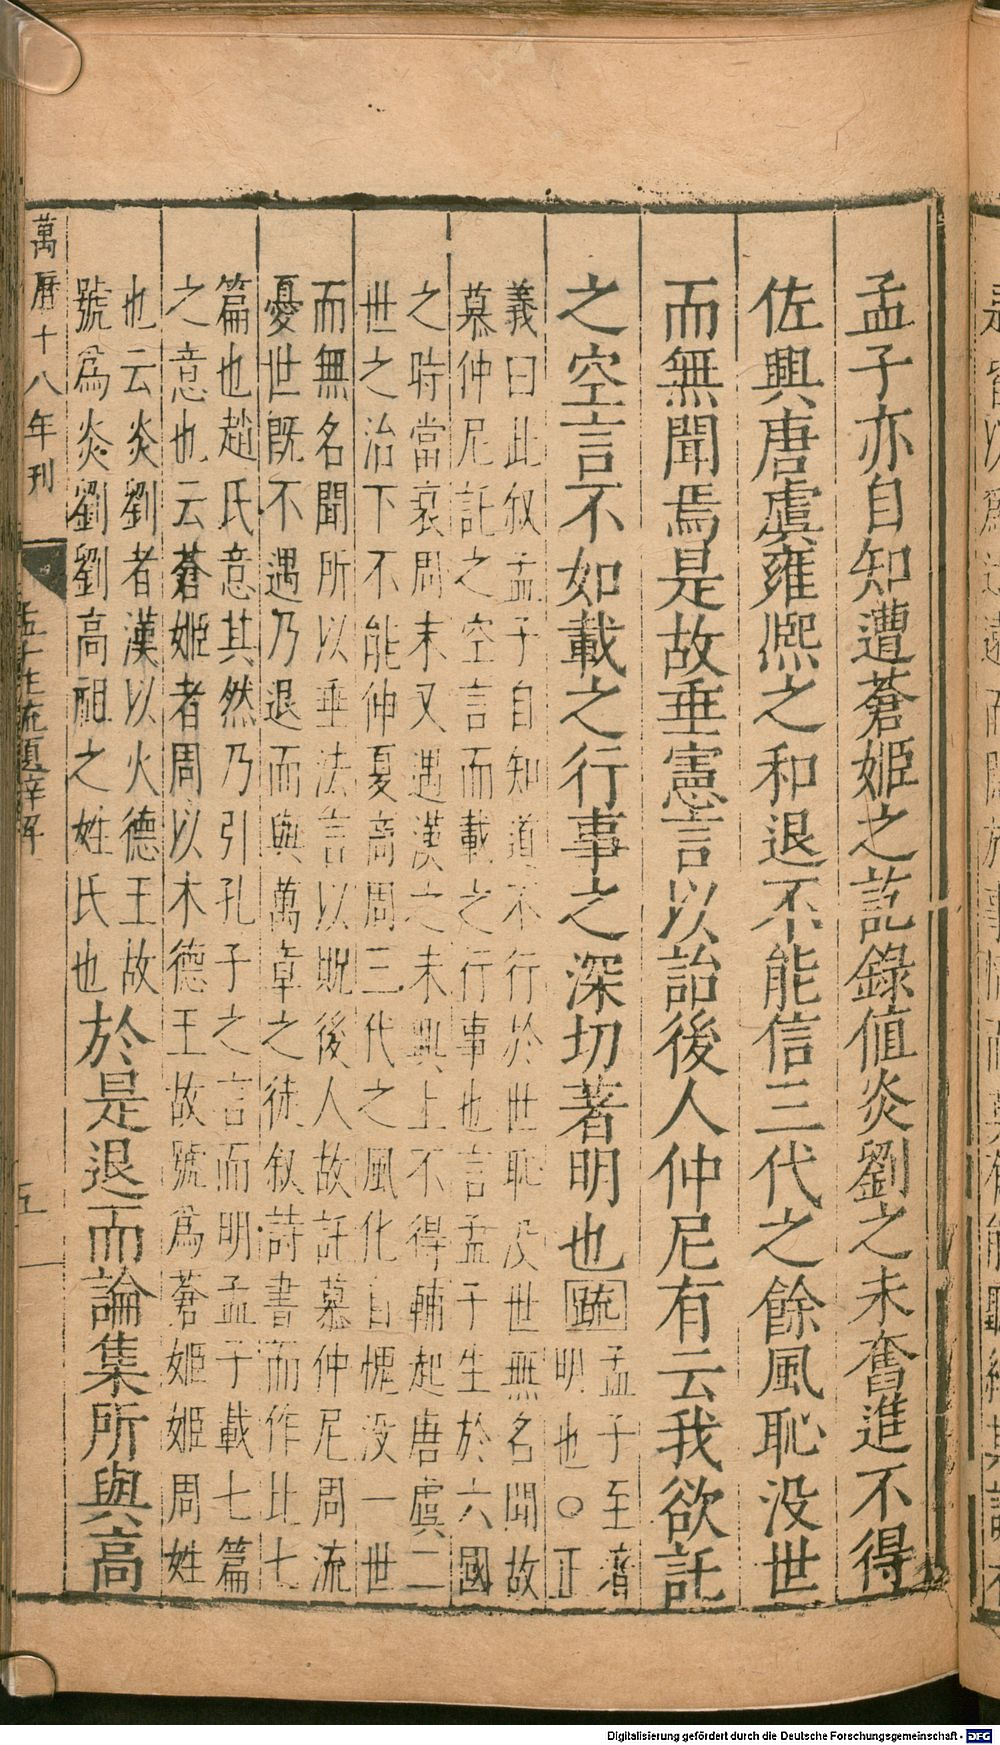 孟子亦自知遭蒼姬之訖錄值炎劉之未奮進不得
佐興唐虞雍熈之和退不能信三代之餘風恥没世
而無聞焉是故垂憲言以詒後人仲尼有云我欲託
之空言不如載之行事之深切著明也疏孟子至著
明也○正
義曰此叙孟子自知道不行於世恥没世無名聞故
慕仲尼託之空言而載之行事也言孟子生於六國
之時當衰周末又遇漢之未興上不得輔起唐虞二
世之治下不能伸夏商周三代之風化自愧没一世
而無名聞所以垂法言以貺後人故託慕仲尼周流
憂世旣不遇乃退而與萬章之徒叙詩書而作此七
篇也趙氏意其然乃引孔子之言而明孟子載七篇
之意也云蒼姬者周以木德王故號爲蒼姬姬周姓
也云炎劉者漢以火德王故
號爲炎劉劉高祖之姓氏也
於是退而論集所與高
萬曆十八年刊
孟子注疏題辭解
五
Digitalisierung gefördert durch die Deutsche Forschungsgemeinschaft - DFG